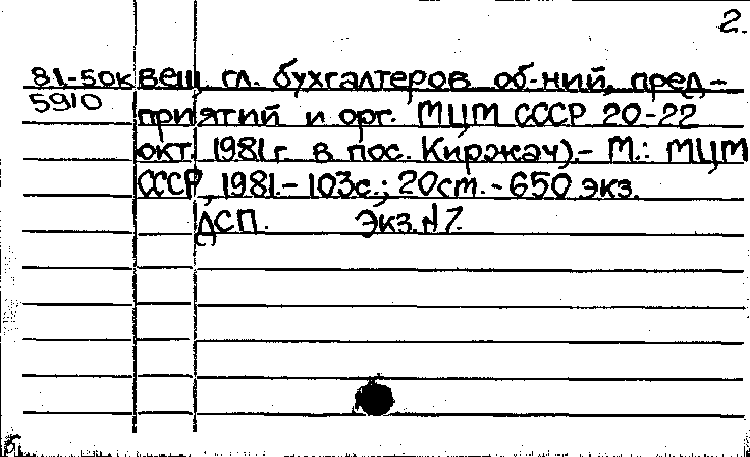 2.
81-50к вещ. гл. бухгалтеров об-ний, пред-
5910 приятий и орг. МЦМ СССР 20-22
окт. 1981 г. в пос. Киржач).- М.: МЦМ
СССР, 1981.- 103с.; 20см. - 650 экз.
ДСП. Экз.№7.
Б